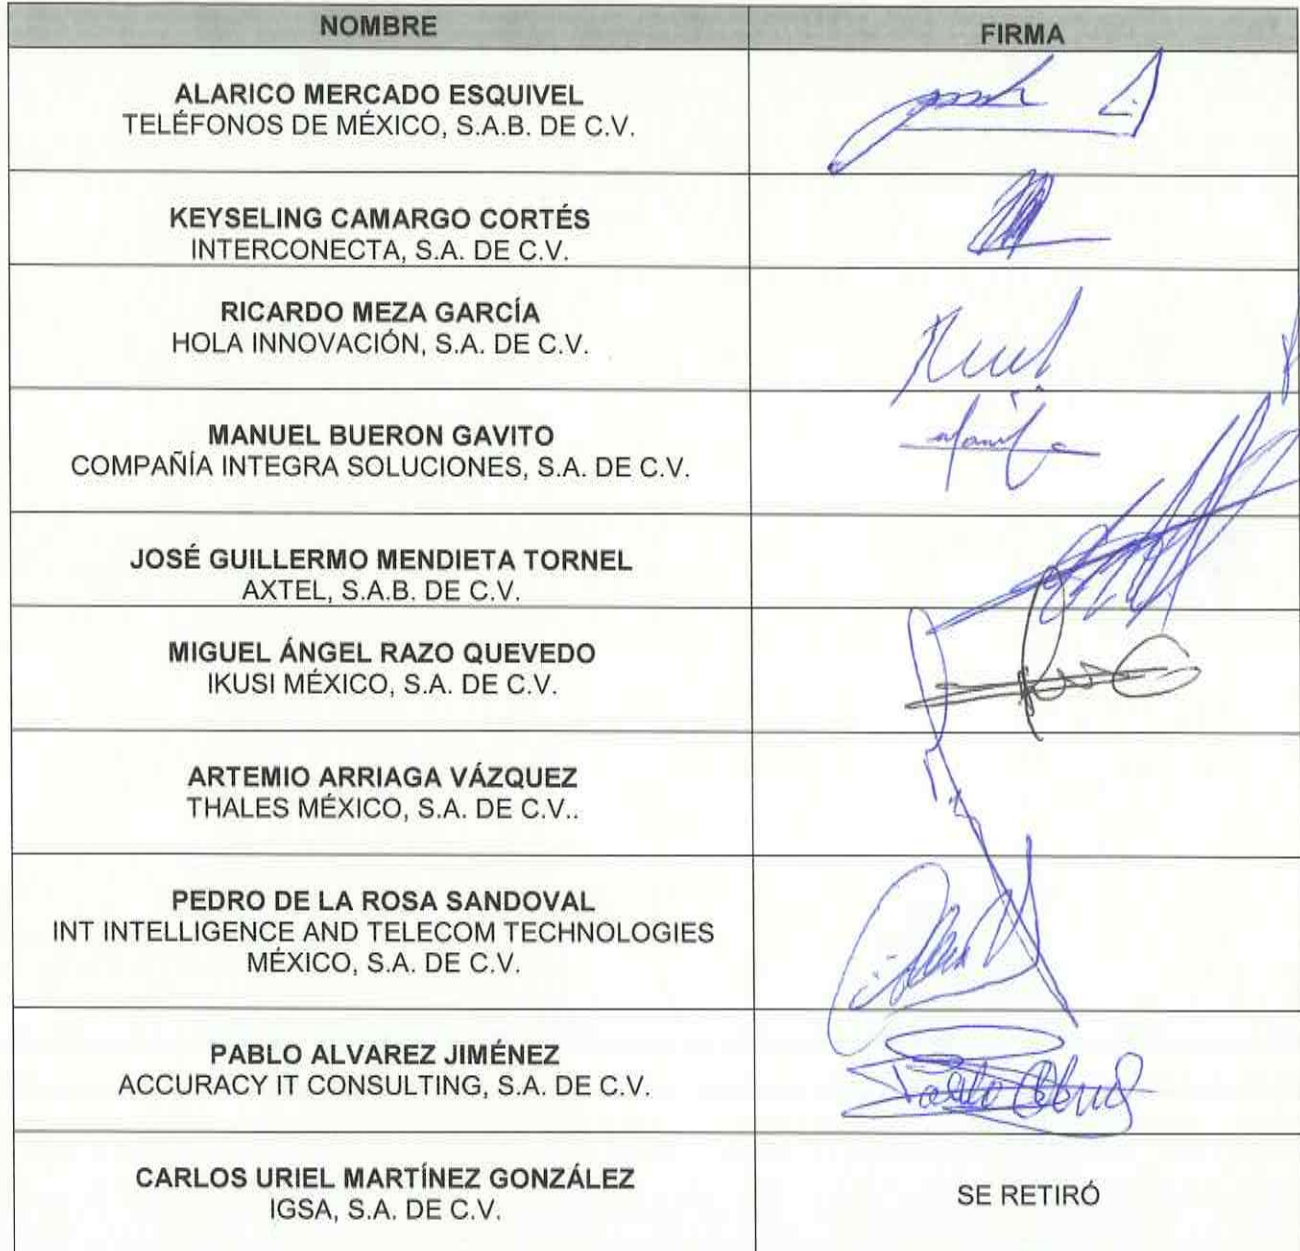 NOMBRE
FIRMA
ALARICO MERCADO ESQUIVEL
TELÉFONOS DE MÉXICO, S.A.B. DE C.V.
KEYSELING CAMARGO CORTÉS
INTERCONECTA, S.A. DE C.V.
RICARDO MEZA GARCÍA
HOLA INNOVACIÓN, S.A. DE C.V.
MANUEL BUERON GAVITO
COMPAÑÍA INTEGRA SOLUCIONES, S.A. DE C.V.
JOSÉ GUILLERMO MENDIETA TORNEL
AXTEL, S.A.B. DE C.V.
MIGUEL ÁNGEL RAZO QUEVEDO
IKUSI MÉXICO, S.A. DE C.V.
ARTEMIO ARRIAGA VÁZQUEZ
THALES MÉXICO, S.A. DE C.V..
PEDRO DE LA ROSA SANDOVAL
INT INTELLIGENCE AND TELECOM TECHNOLOGIES
MÉXICO, S.A. DE C.V.
PABLO ALVAREZ JIMÉNEZ
ACCURACY IT CONSULTING, S.A. DE C.V.
CARLOS URIEL MARTÍNEZ GONZÁLEZ
IGSA, S.A. DE C.V.
SE RETIRÓ